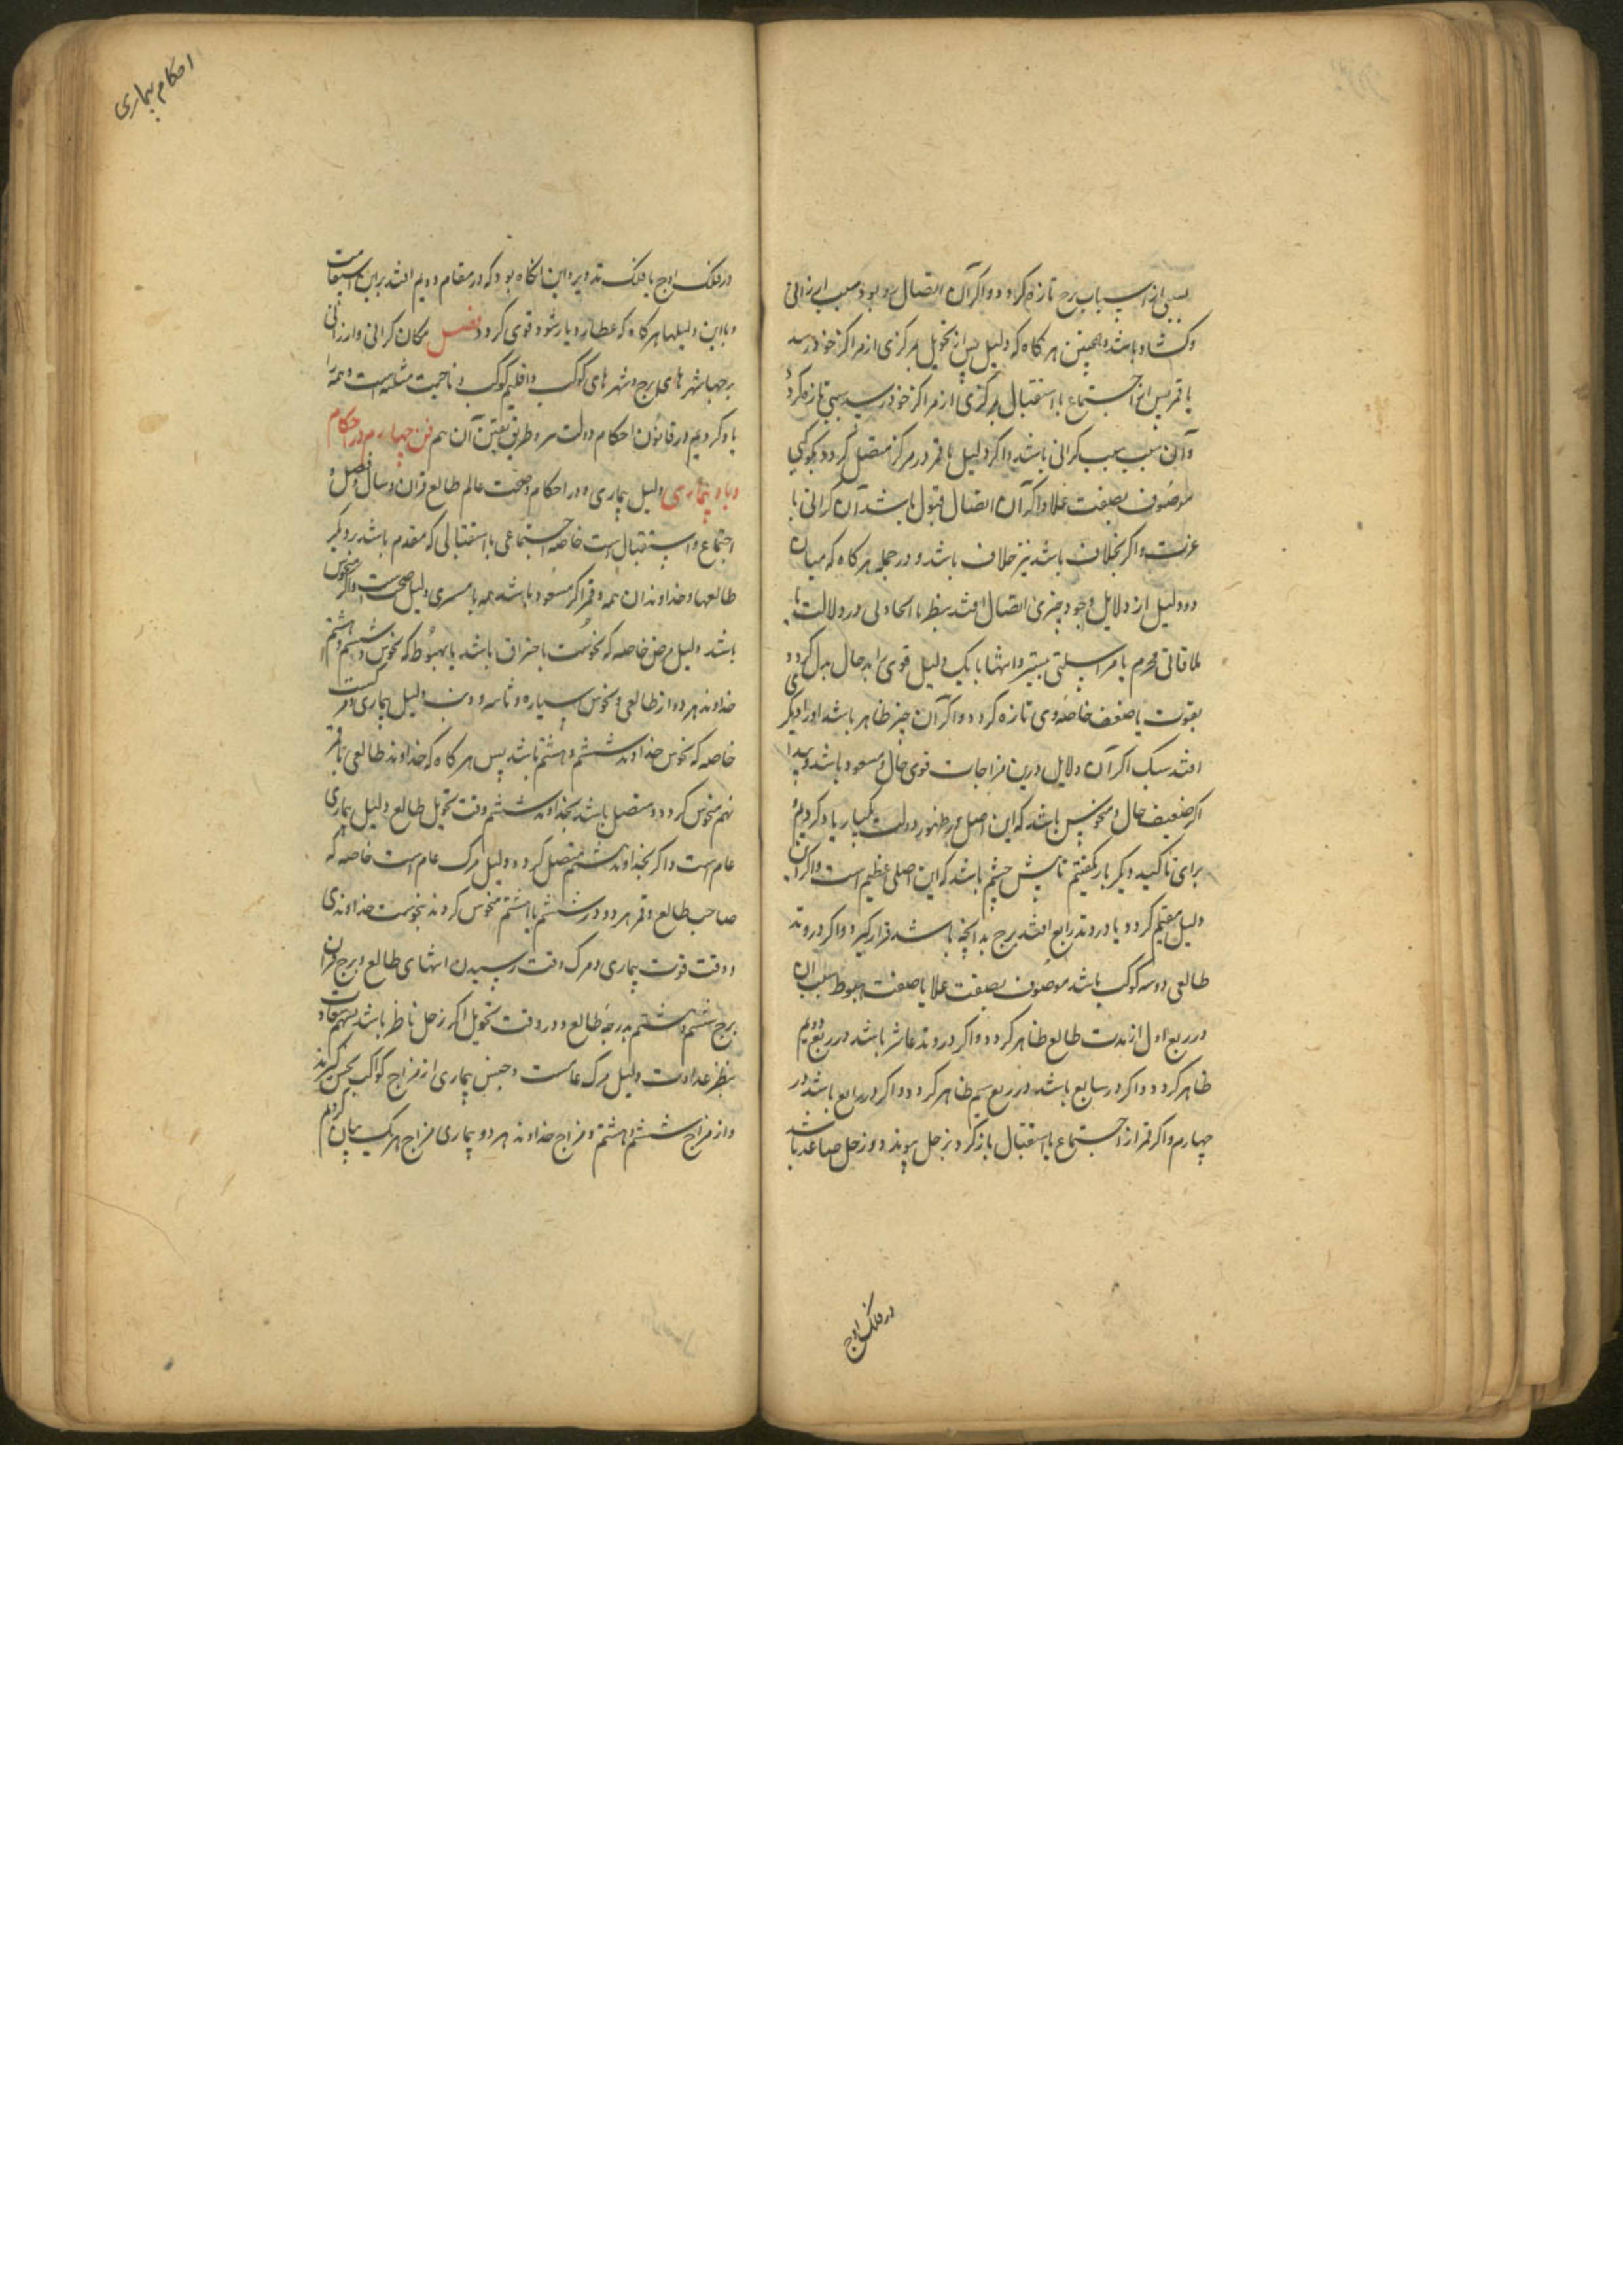 سببی از اسباب نرخ تازه گردد و اگر آن اتصال رد بود سبب ارزانی
و کشاد باشد و همچنین هر کاه که دلیل پس از تحویل بمرکزی از مراکز خود رسد
یا قمر پس از اجتماع یا استقبال بمرکزی از مراکز خود رسد سببی تازه کردد
و آن سبب سبب کرانی باشد و اکر دلیل یا قمر در مرکز متصل کردد بکوکبی
موصوف بصفت علا و اکر آن اتصال قبول باشد آن کرانی با
عزت و اکر بخلاف باشد نیز خلاف باشد و در جمله هر کاه که میان
دو دلیل از دلایل وجود چیزی اتصال افتد بنظر یا
ملاقاتی بجرم یا بمراسلتی
بقوت یا ضعف خاصه وی تازه کردد و اکر آن چیز ظاهر باشد او را دیکر
افتد سبک اکر آن دلایل درین مزاجات قوی حال و مسعود باشد و پیدا
اکر ضعیف حال و منحوس باشد که این اصل در ظهور دولت یکبار یاد کردیم
برای تاکید دیکر بار بکفتیم تا پیش چشم باشد که این اصلی عظیم است و اکر آن
دلیل مقیم کردد یا در وتد رابع افتد نرخ بدانچه باشد قرار کیرد و اکر در وتد
طالعی دو سه کوکب باشد موصوف بصفت علا یا صفت هبوط سبب آن
در ربع اول از مدت طالع ظاهر کردد و اکر در وتد عاشر باشد در ربع دویم
ظاهر کردد و اکر در سابع باشد در ربع سیم ظاهر کردد و اکر در رابع باشد در
چهارم و اکر قمر از اجتماع یا استقبال باز کردد بزحل پیوندد و زحل صاعد باشد
در فلک اوج
احکام بیماری
در فلک اوج یا فلک تدویر و این انکاه بود که در مقام دویم افتد براین استقامت
و با این دلیلها هر کاه که عطارد یار شود قوی کردد فصل مکان کرانی و ارزانی
برجها شهرهای برج و شهرهای کوکب و اقلیم کوکب و ناحیت مثلثه است و همه را
یاد کردیم در قانون احکام دولت و طریق تعیین آن هم فن چهارم در احکام
وبا و بیماری دلیل بیماری و در احکام و صحت عالم طالع قران و سال و فصل و
اجتماع و استقبال است خاصه اجتماعی یا استقبالی که مقدم باشد بر دیکر
طالعها و خداوندان همه و قمر اکر مسعود باشد همه یا مسری دلیل صحت است و اکر منحوس
باشد دلیل مرض خاصه که نحوست باحتراق باشد یا بهبوط که نحوس و ششم و هشتم
خداوند هر دو از طالعی و نحوس سیاره و ثابته و ذنب دلیل بیماری و مرکست
خاصه که نحوس خداوند ششم و هشتم باشد پس هر کاه که خداوند طالعی یا قمر
بهم منحوس کردد و متصل باشد بخداوند ششم وقت تحویل طالع دلیل بیماری
عام است و اکر بخداوند هشتم متصل کردد دلیل مرک عام است خاصه که
صاحب طالع و قمر هر دو در ششم یا هشتم منحوس کردند بنحوست خداوندی
و وقت قوت بیماری و مرک وقت رسیدن انتهای طالع و برج قران
برج ششم و هشتم بدرجه طالع و در وقت تحویل اکر زحل ناظر باشد بسهم سعادت
بنظر عداوت دلیل مرک عامست و جنس بیماری از مزاج کوکب نحس کیرند
و از مزاج ششم و هشتم و مزاج خداوند هر دو بیماری مزاج هر یک بیان کردیم